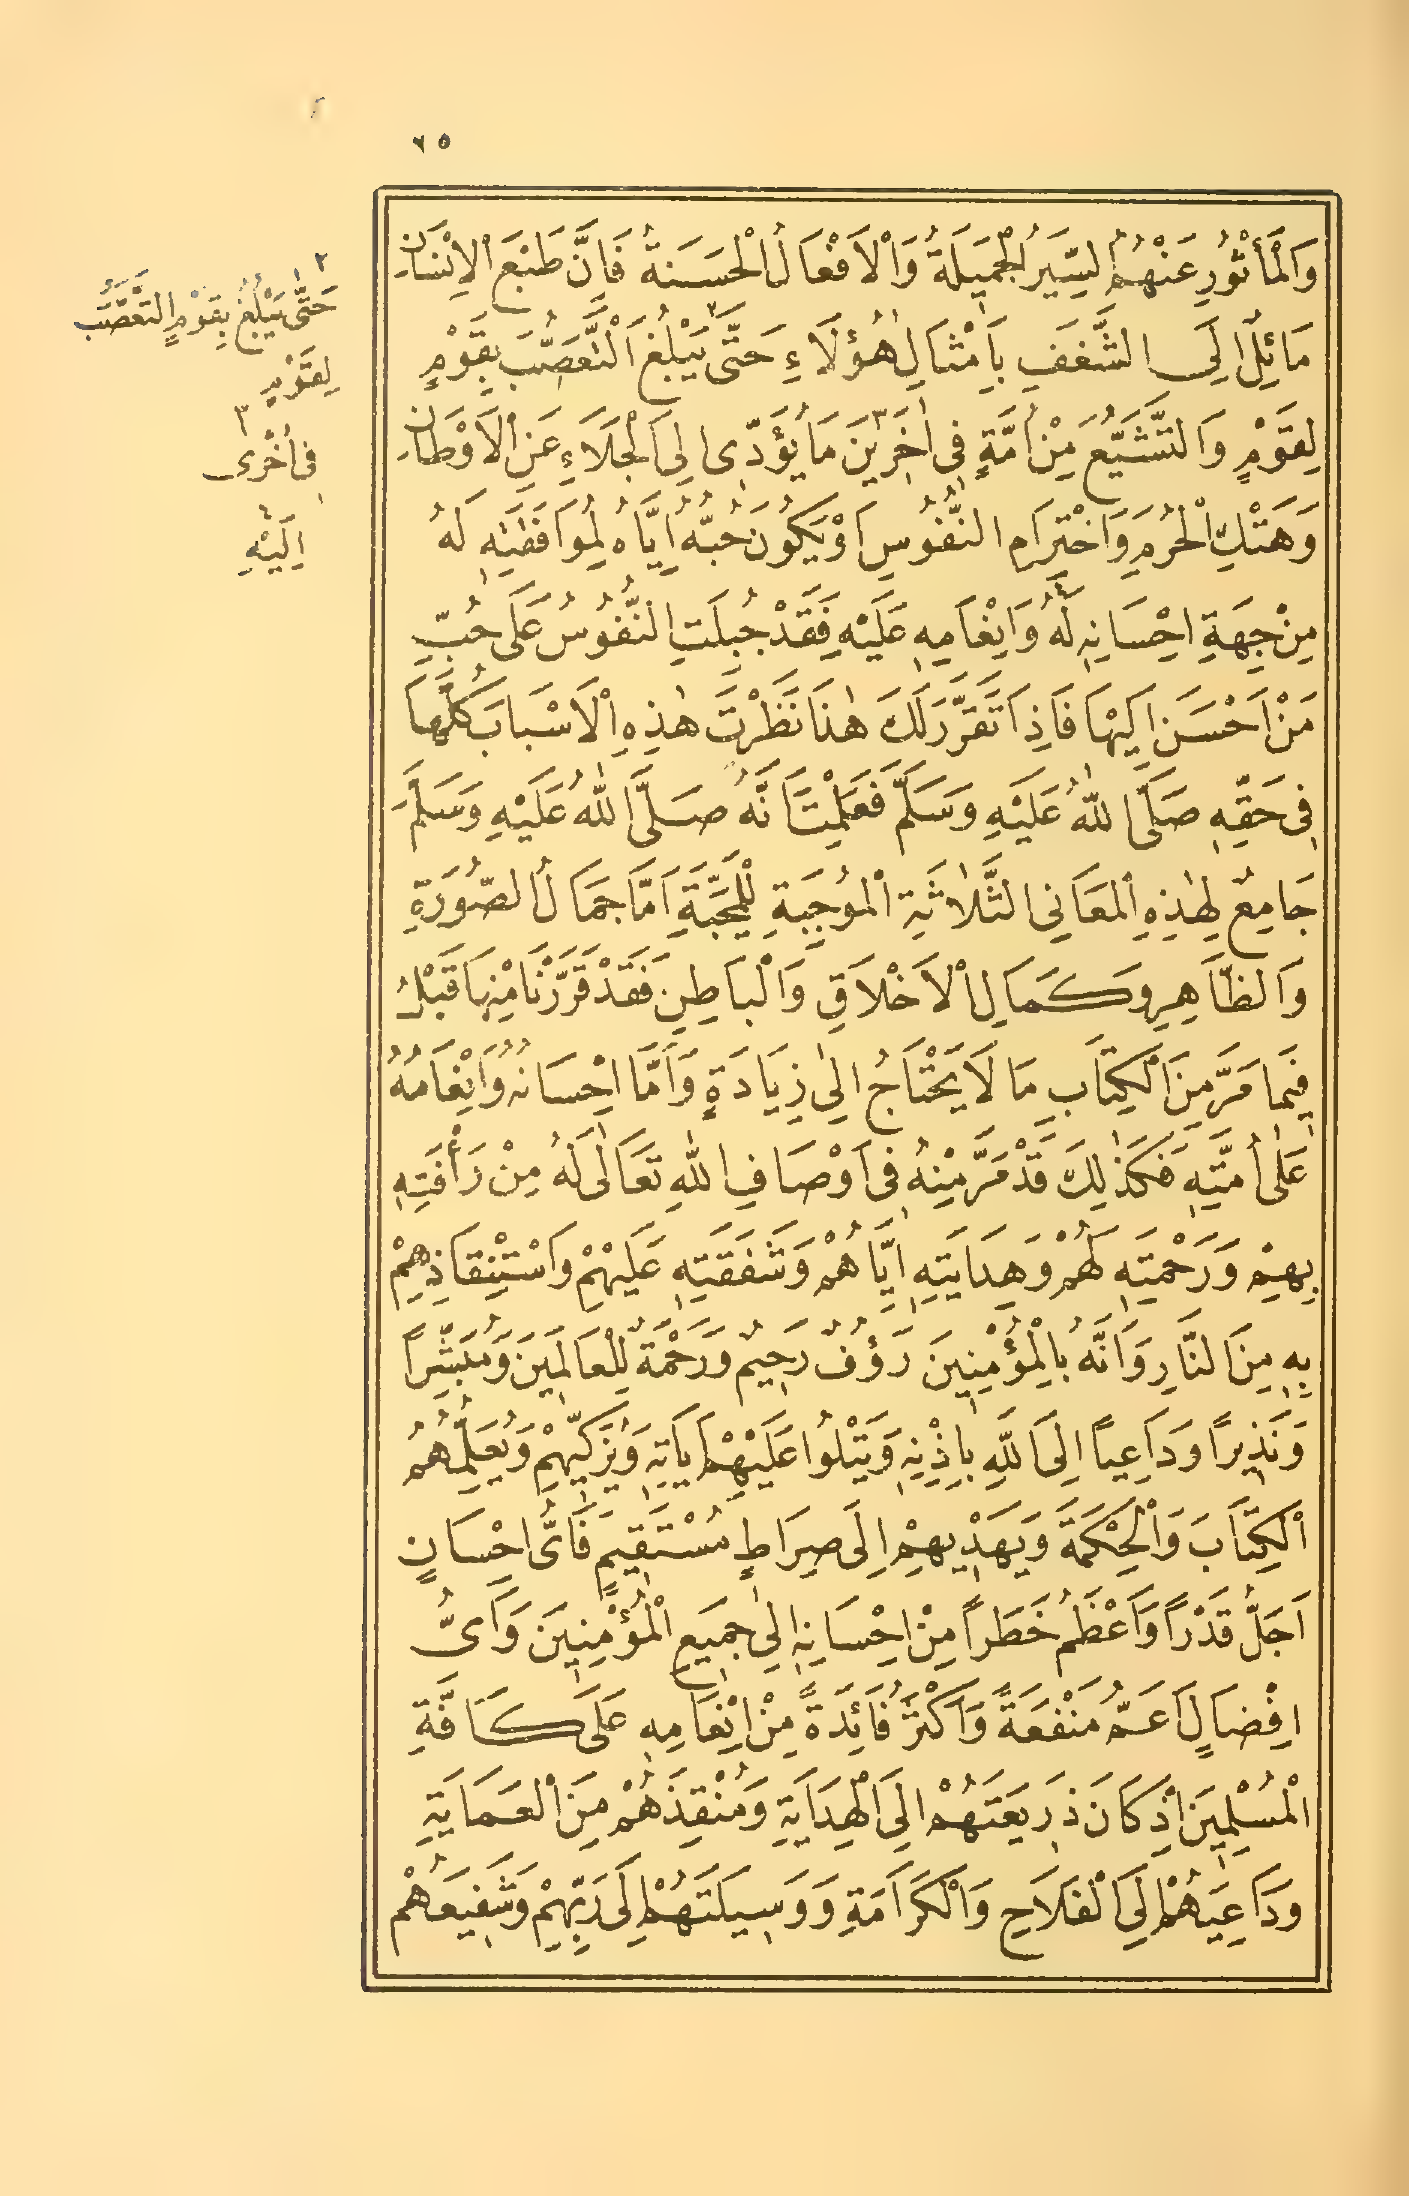 ٦٥
وَالْمَأْثُورِ عَنْهُمُ السِّيَرُ الْجَمِيلَةُ وَالْاَفْعَالُ الْحَسَنَةُ فَاِنَّ طَبْعَ الْاِنْسَانِ
مَائِلٌ اِلَى الشَّغَفِ بِاَمْثَالِ هٰؤُلَاءِ حَتَّى يَبْلُغَ التَّعَصُّبَ بِقَوْمٍ
لِقَوْمٍ وَالتَّشَيُّعَ مِنْ اُمَّةٍ فِى اٰخَرِينَ مَا يُؤَدِّى اِلَى الْجَلَاءِ عَنِ الْاَوْطَانِ
وَهَتْكِ الْحُرَمِ وَاخْتِرَامِ النُّفُوسِ اَوْ يَكُونَ حُبُّهُ اِيَّاهُ لِمُوَافَقَتِهِ لَهُ
مِنْ جِهَةِ اِحْسَانِهِ لَهُ وَاِنْعَامِهِ عَلَيْهِ فَقَدْ جُبِلَتِ النُّفُوسُ عَلَى حُبِّ
مَنْ اَحْسَنَ اِلَيْهَا فَاِذَا تَقَرَّرَ لَكَ هٰذَا نَظَرْتَ هٰذِهِ الْاَسْبَابَ كُلَّهَا
فِى حَقِّهِ صَلَّى اللّٰهُ عَلَيْهِ وَسَلَّمَ فَعَلِمْتَ اَنَّهُ صَلَّى اللّٰهُ عَلَيْهِ وَسَلَّمَ
جَامِعٌ لِهٰذِهِ الْمَعَانِى الثَّلَاثَةِ الْمُوجِبَةِ لِلْمَحَبَّةِ اَمَّا جَمَالُ الصُّورَةِ
وَالظَّاهِرِ وَكَمَالِ الْاَخْلَاقِ وَالْبَاطِنِ فَقَدْ قَرَّرْنَا مِنْهَا قَبْلُ
فِيمَا مَرَّ مِنَ الْكِتَابِ مَا لَا يَحْتَاجُ اِلَى زِيَادَةٍ وَاَمَّا اِحْسَانُهُ وَاِنْعَامُهُ
عَلَى اُمَّتِهِ فَكَذٰلِكَ قَدْ مَرَّ مِنْهُ فِى اَوْصَافِ اللّٰهِ تَعَالٰى لَهُ مِنْ رَأْفَتِهِ
بِهِمْ وَرَحْمَتِهِ لَهُمْ وَهِدَايَتِهِ اِيَّاهُمْ وَشَفَقَتِهِ عَلَيْهِمْ وَاسْتِنْقَاذِهِمْ
بِهِ مِنَ النَّارِ وَاَنَّهُ بِالْمُؤْمِنِينَ رَؤُفٌ رَحِيمٌ وَرَحْمَةً لِلْعَالَمِينَ وَمُبَشِّرًا
وَنَذِيرًا وَدَاعِيًا اِلَى اللّٰهِ بِاِذْنِهِ وَيَتْلُوا عَلَيْهِمْ اٰيَاتِهِ وَيُزَكِّيهِمْ وَيُعَلِّمُهُمُ
الْكِتَابَ وَالْحِكْمَةَ وَيَهْدِيهِمْ اِلَى صِرَاطٍ مُسْتَقِيمٍ فَاَىُّ اِحْسَانٍ
اَجَلُّ قَدْرًا وَاَعْظَمُ خَطَرًا مِنْ اِحْسَانِهِ اِلَى جَمِيعِ الْمُؤْمِنِينَ وَاَىُّ
اِفْضَالٍ اَعَمُّ مَنْفَعَةً وَاَكْثَرُ فَائِدَةً مِنْ اِنْعَامِهِ عَلَى كَافَّةِ
الْمُسْلِمِينَ اِذْ كَانَ ذَرِيعَتَهُمْ اِلَى الْهِدَايَةِ وَمُنْقِذَهُمْ مِنَ الْعَمَايَةِ
وَدَاعِيَهُمْ اِلَى الْفَلَاحِ وَالْكَرَامَةِ وَوَسِيلَتَهُمْ اِلَى رَبِّهِمْ وَشَفِيعَهُمْ
٢ ١
حَتَّى يَبْلُغَ بِقَوْمٍ التَّعَصُّبُ
لِقَوْمٍ
٣
فِى اُخْرٰى
٤
اِلَيْهِ